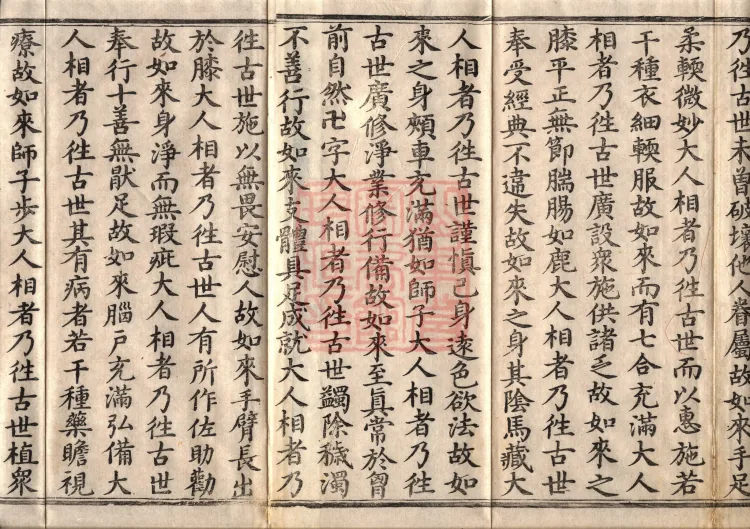 乃徃古世未曾破壞他人眷屬故如來手足
柔輭微妙大人相者乃徃古世而以惠施若
干種衣細輭服故如來而有七合充滿大人
相者乃徃古世廣設衆施供諸乏故如來之
膝平正無節腨腸如鹿大人相者乃徃古世
奉受經典不違失故如來之身其陰馬藏大
人相者乃徃古世謹慎己身遠色欲法故如
來之身頰車充滿猶如師子大人相者乃徃
古世廣修淨業修行備故如來至眞常於胷
前自然卍字大人相者乃徃古世蠲除穢濁
不善行故如來支體具足成就大人相者乃
徃古世施以無畏安慰人故如來手臂長出
於膝大人相者乃徃古世人有所作佐助勸
故如來身淨而無瑕疵大人相者乃徃古世
奉行十善無猒足故如來腦戸充滿弘備大
人相者乃徃古世其有病者若干種藥瞻視
療故如來師子步大人相者乃徃古世植衆